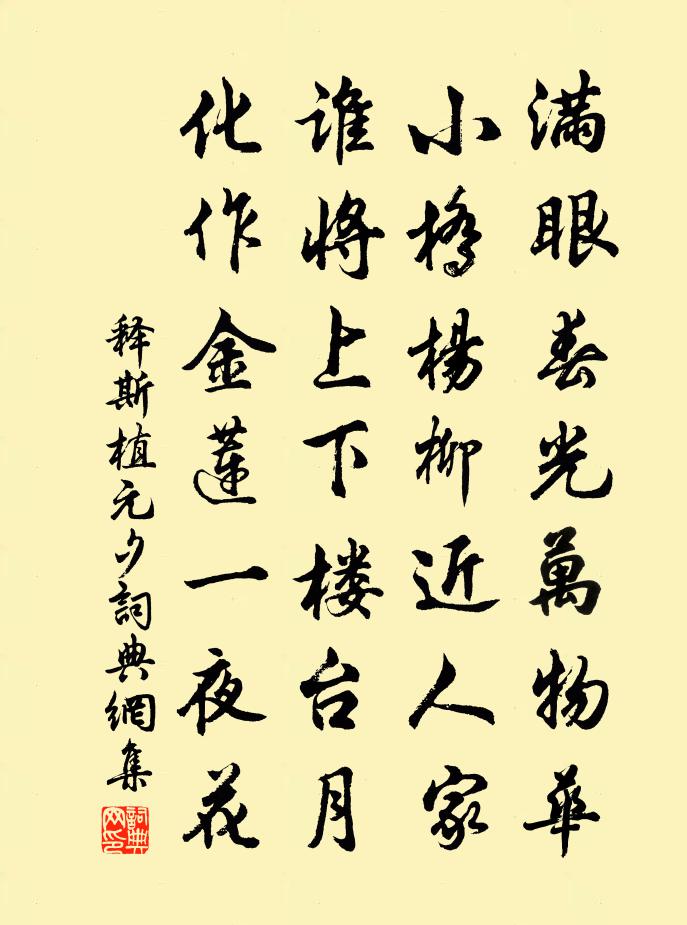 满眼春光萬物華
小橋楊柳近人家
谁將上下楼台月
化作金蓮一夜花
释斯植元夕詞典網集
詞典网印